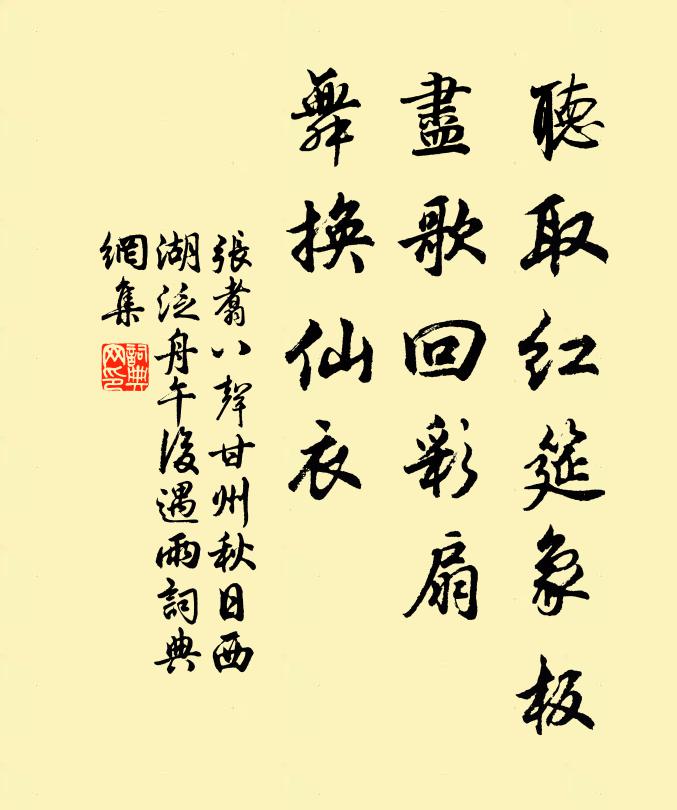 聽取紅筵象板
盡歌回彩扇
舞換仙衣
張翥八聲甘州秋日西
湖泛舟午後遇雨詞典
網集
詞典
网印